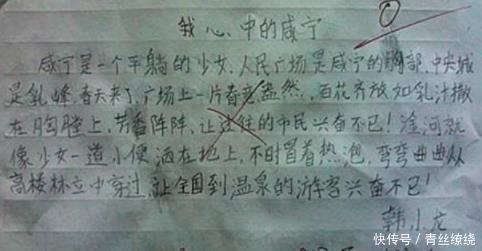 我心中的咸宁
咸宁是一个平躺的少女，人民广场是咸宁的胸部，中央城
是乳峰，春天来了，广场上一片春意盎然，百花齐放如乳汁撒
在胸膛上，芳香阵阵，让过往的市民兴奋不已！淦河就
像少女一道小便洒在地上，不时冒着热泡，弯弯曲曲从
高楼林立中穿过，让全国到温泉的游客兴奋不已！
韩小龙
快传号/青丝缭绕